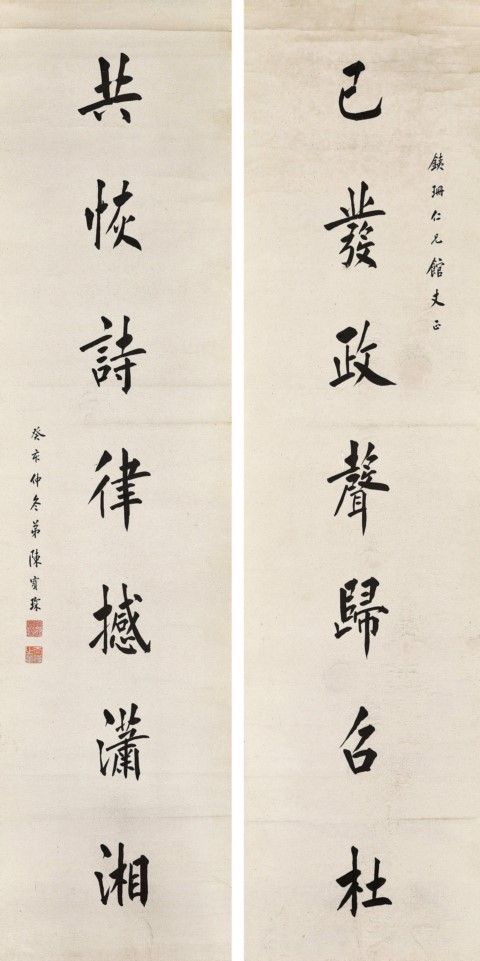 銕珊仁兄館丈正
已發政聲歸召杜
共恢詩律撼瀟湘
癸亥仲冬弟陳寶琛